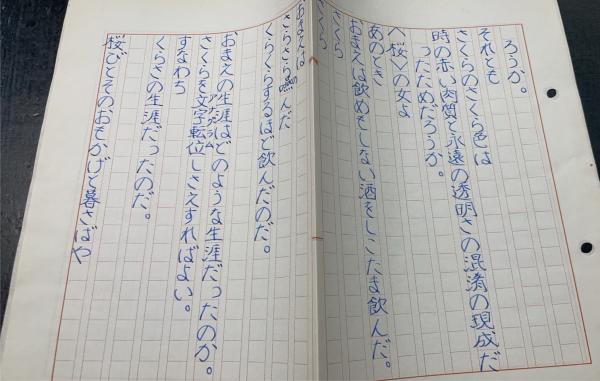 ろうか。
それとも
さくらのさくら色は
時の赤い肉質と永遠の透明さの混淆の現成だ
ったためだろうか。
〈桜〉の女よ
あのとき
おまえは飲めもしない酒をしこたま飲んだ。
さくら
くら
おまえは
さらさら嚥んだ
くらくらするほど飲んだのだ。
おまえの生涯はどのような生涯だったのか。
アナグラム
さくらを文字転位しさえすればよい。
すなわち
くらさの生涯だったのだ。
桜びとそのおもかげと暮さばや